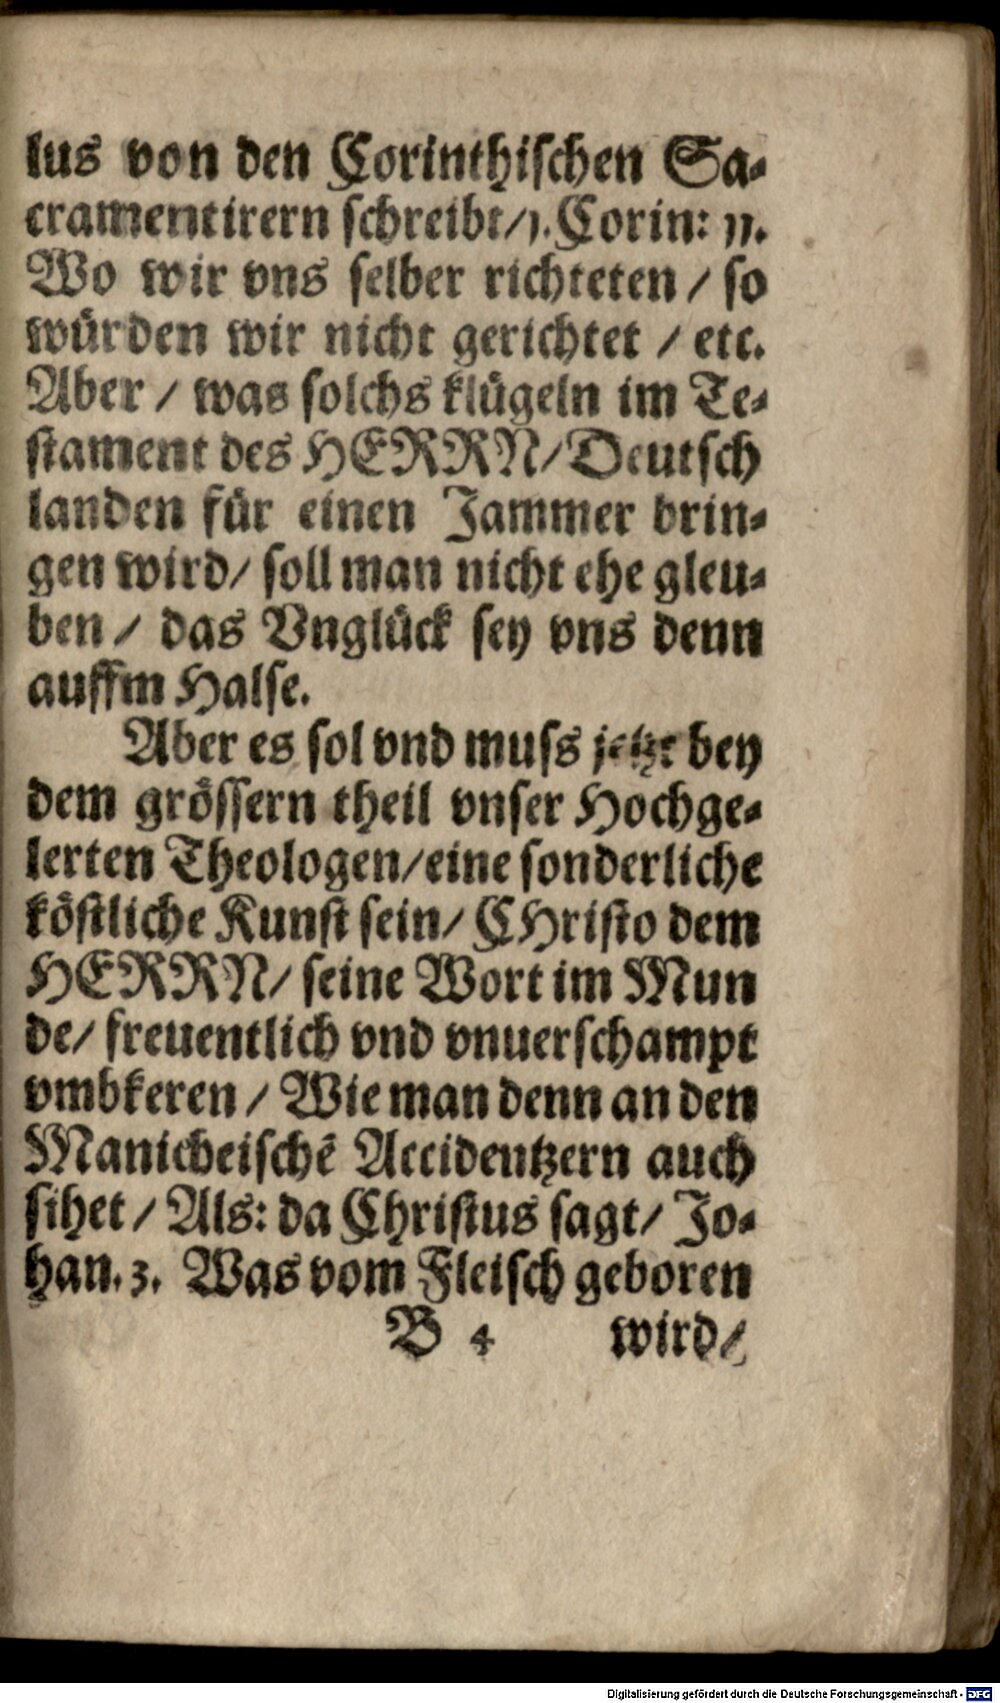 lus von den Corinthischen Sa-
cramentirern schreibt/1. Corin: 11.
Wo wir vns selber richteten / so
würden wir nicht gerichtet / etc.
Aber / was solchs klügeln im Te-
stament des HERRN/Deutsch
landen für einen Jammer brin-
gen wird/ soll man nicht ehe gleu-
ben / das Vnglück sey vns denn
auffm Halse.
Aber es sol vnd muss jetzt bey
dem grössern theil vnser Hochge-
lerten Theologen/eine sonderliche
köstliche Kunst sein/ CHristo dem
HERRN/ seine Wort im Mun
de/ freuentlich vnd vnuerschampt
vmbkeren / Wie man denn an den
Manicheischē Accidentzern auch
sihet / Als: da Christus sagt/ Jo-
han. 3. Was vom Fleisch geboren
B 4 wird/
Digitalisierung gefördert durch die Deutsche Forschungsgemeinschaft - DFG